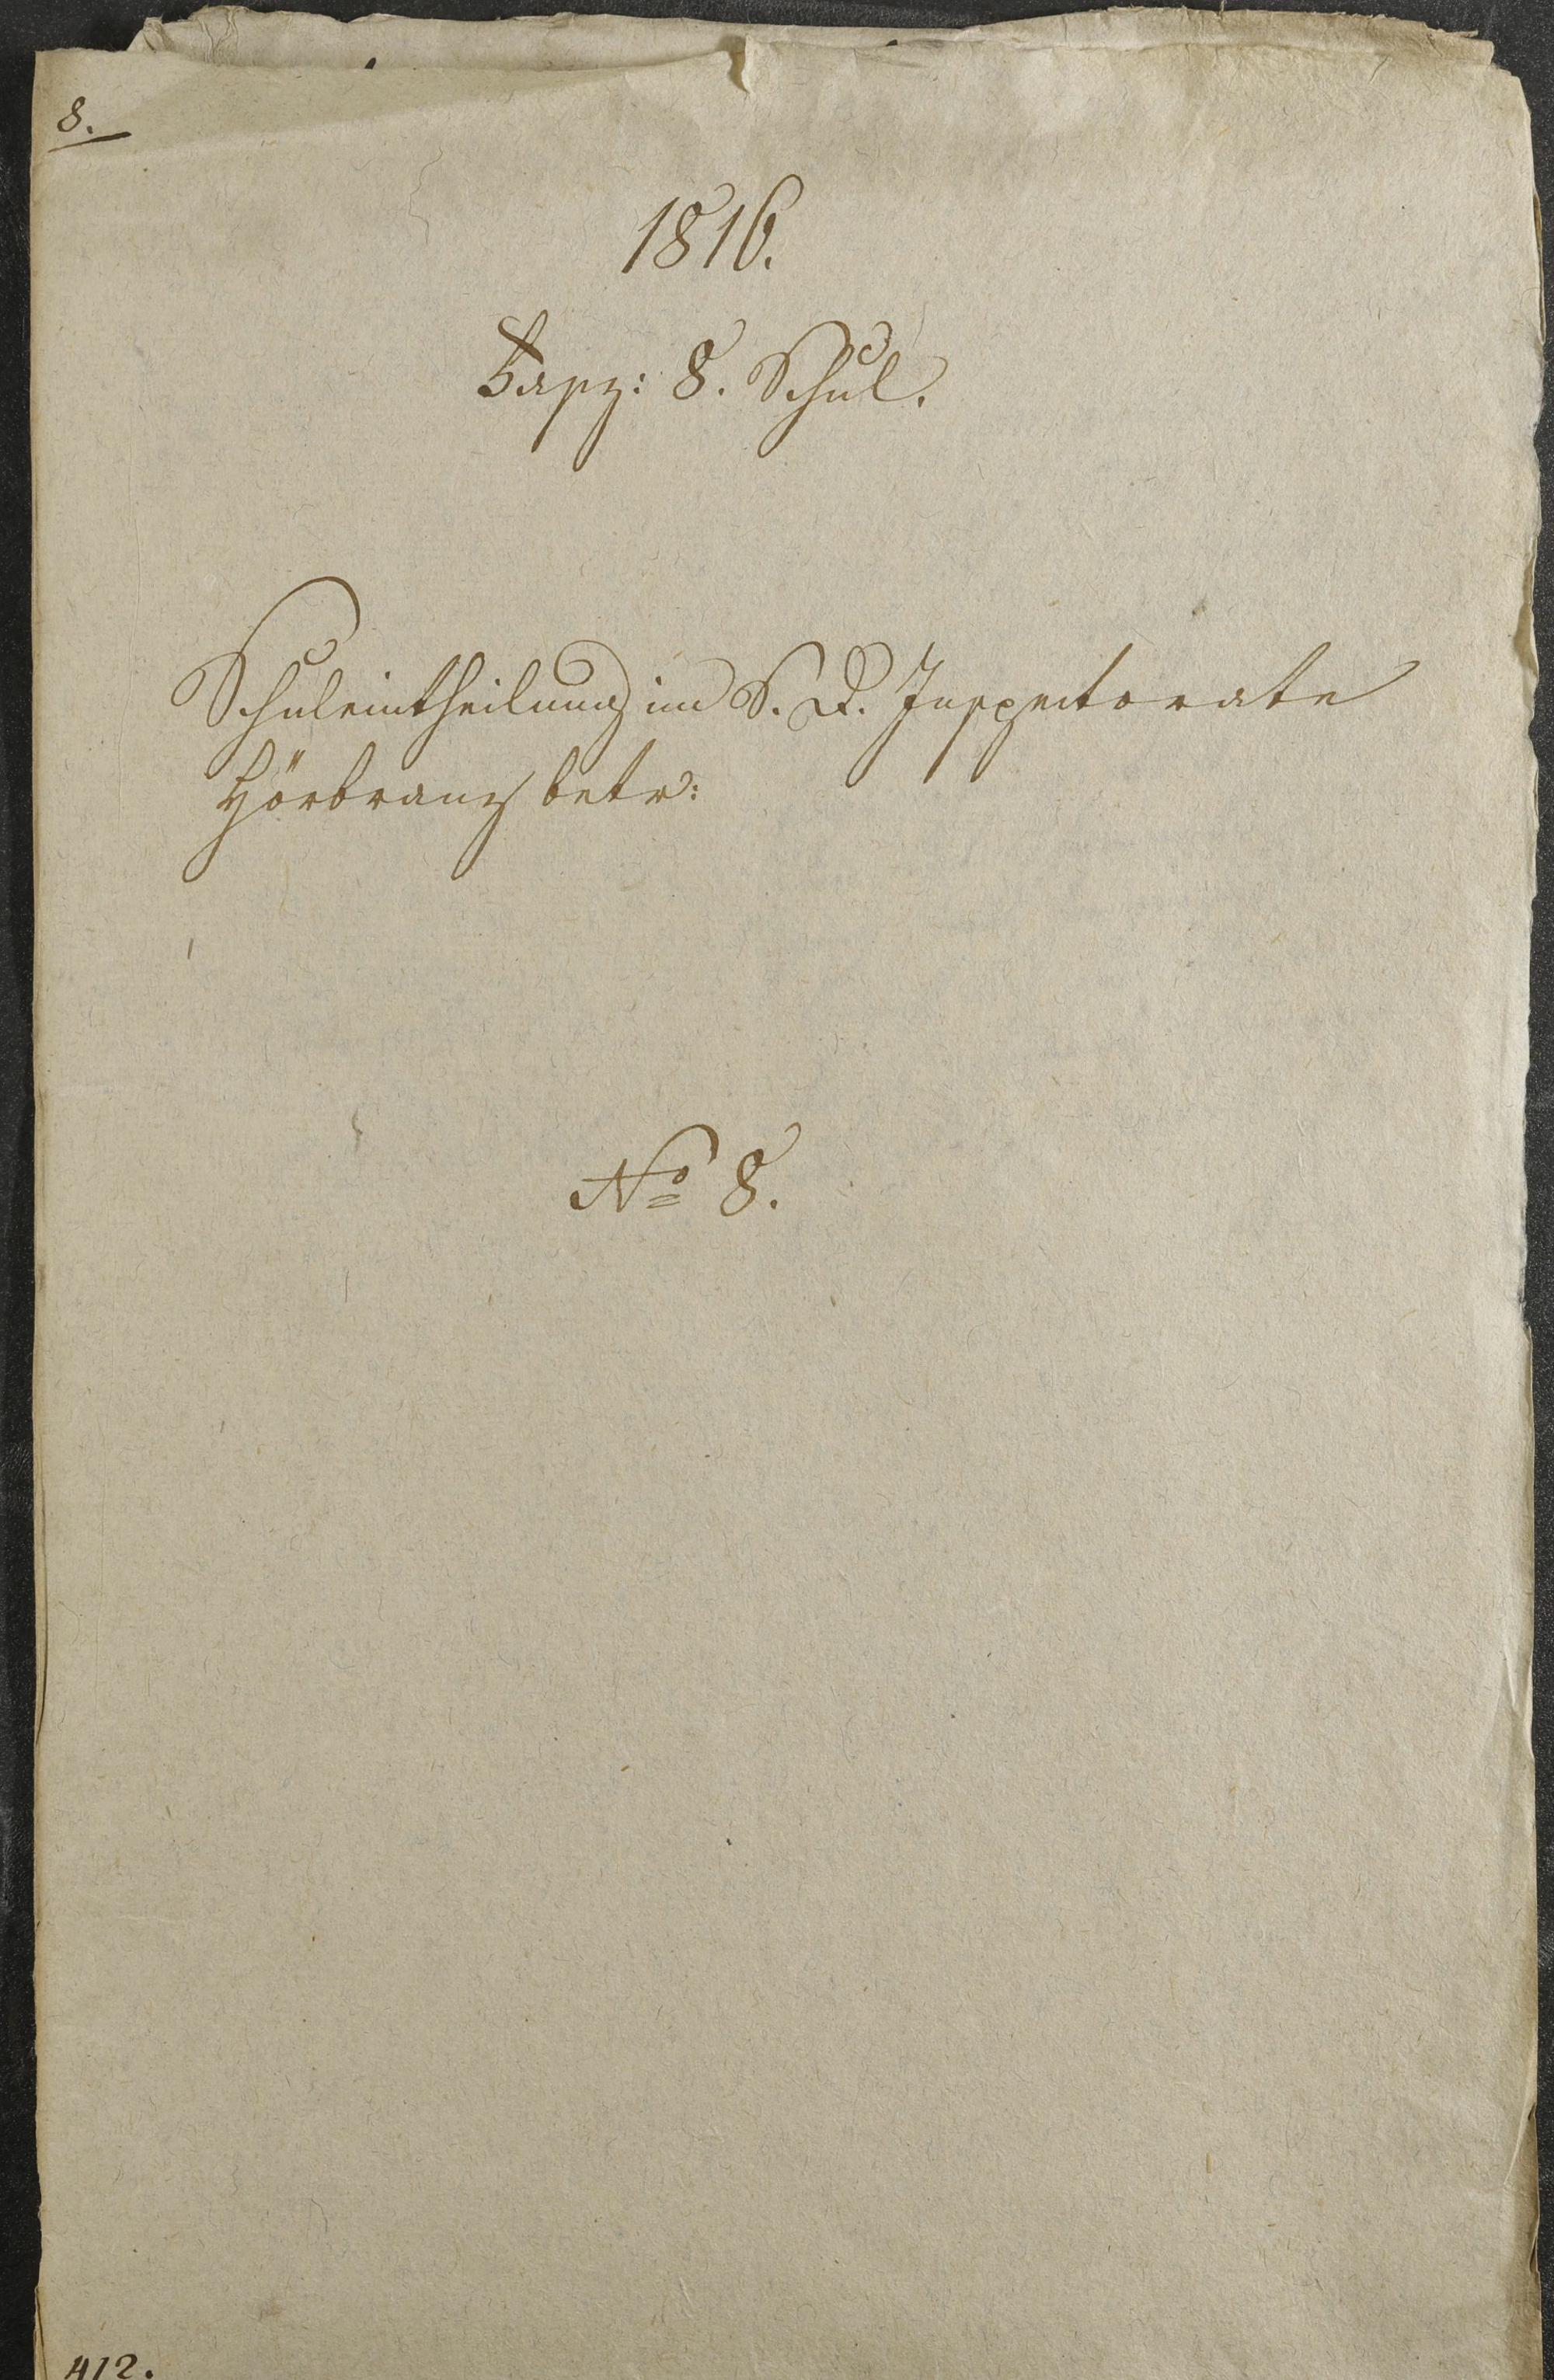 8.
1816.
Fasz: 8. Schul.
Schuleintheilung im S. D. Inspectorate
Hörbranz betr:
No 8.
412.